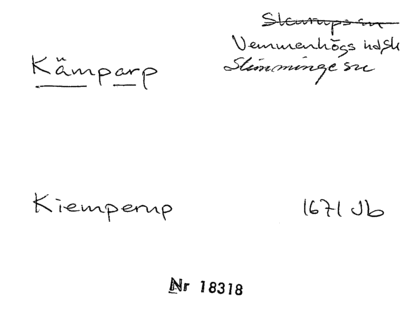 Skurups sn
Vemmenhögs hd Sk
Kämparp
Slimminge sn
Kiemperup 1671 Jb
Nr 18318